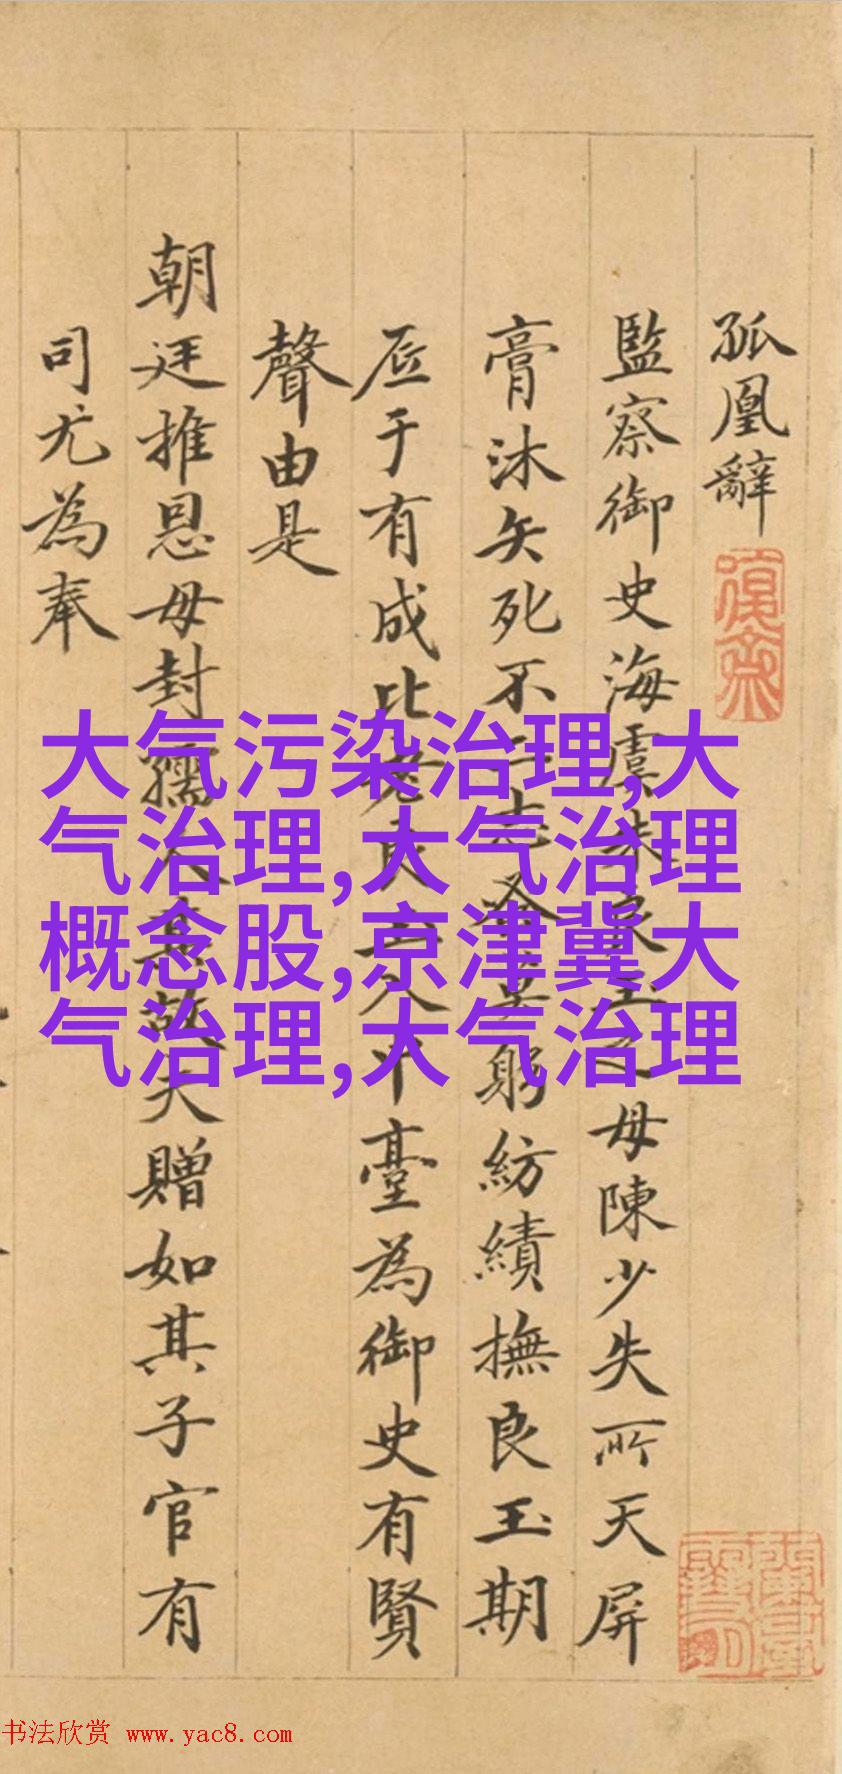 孤凰辭
監察御史海虞朱良玉之母陳少失所天屏
膏沐矢死不二志躬紡績撫良玉期
底于有成比良玉入中臺為御史有賢
聲由是
朝廷推恩母封孺人其故夫贈如其子官有
司尤為奉
大气污染治理,大
气治理,大气治理
概念股,京津冀大
气治理,大气治理
书法欣赏 www.yac8.com